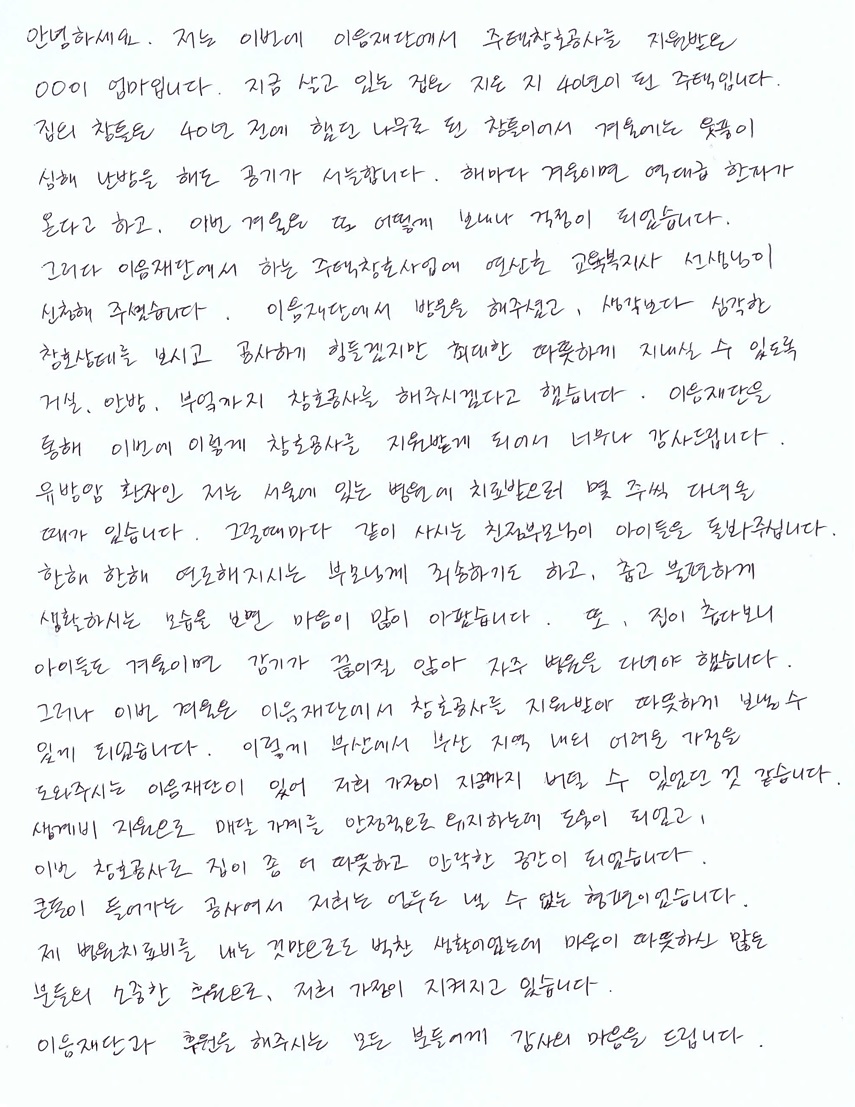 안녕하세요. 저는 이번에 이음재단에서 주택창호공사를 지원받은
OO이 엄마입니다. 지금 살고 있는 집은 지은 지 40년이 된 주택입니다.
집의 창틀은 40년 전에 했던 나무로 된 창틀이어서 겨울에는 웃풍이
심해 난방을 해도 공기가 서늘합니다. 해마다 겨울이면 역대급 한파가
온다고 하고, 이번 겨울은 또 어떻게 보내나 걱정이 되었습니다.
그러다 이음재단에서 하는 주택창호사업에 연산초 교육복지사 선생님이
신청해 주셨습니다. 이음재단에서 방문을 해주셨고, 생각보다 심각한
창호상태를 보시고 공사하기 힘들겠지만 최대한 따뜻하게 지내실 수 있도록
거실, 안방, 부엌까지 창호공사를 해주시겠다고 했습니다. 이음재단을
통해 이번에 이렇게 창호공사를 지원받게 되어서 너무나 감사드립니다.
유방암 환자인 저는 서울에 있는 병원에 치료받으러 몇 주씩 다녀올
때가 있습니다. 그럴때마다 같이 사시는 친정부모님이 아이들을 돌봐주십니다.
한해 한해 연로해지시는 부모님께 죄송하기도 하고, 춥고 불편하게
생활하시는 모습을 보면 마음이 많이 아팠습니다. 또, 집이 춥다보니
아이들도 겨울이면 감기가 끊이질 않아 자주 병원을 다녀야 했습니다.
그러나 이번 겨울은 이음재단에서 창호공사를 지원받아 따뜻하게 보낼 수
있게 되었습니다. 이렇게 부산에서 부산 지역 내의 어려운 가정을
도와주시는 이음재단이 있어 저희 가정이 지금까지 버틸 수 있었던 것 같습니다.
생계비 지원으로 매달 가계를 안정적으로 유지하는데 도움이 되었고,
이번 창호공사로 집이 좀 더 따뜻하고 안락한 공간이 되었습니다.
큰돈이 들어가는 공사여서 저희는 엄두도 낼 수 없는 형편이었습니다.
제 병원치료비를 내는 것만으로도 벅찬 생활이었는데 마음이 따뜻하신 많은
분들의 소중한 후원으로, 저희 가정이 지켜지고 있습니다.
이음재단과 후원을 해주시는 모든 분들에게 감사의 마음을 드립니다.